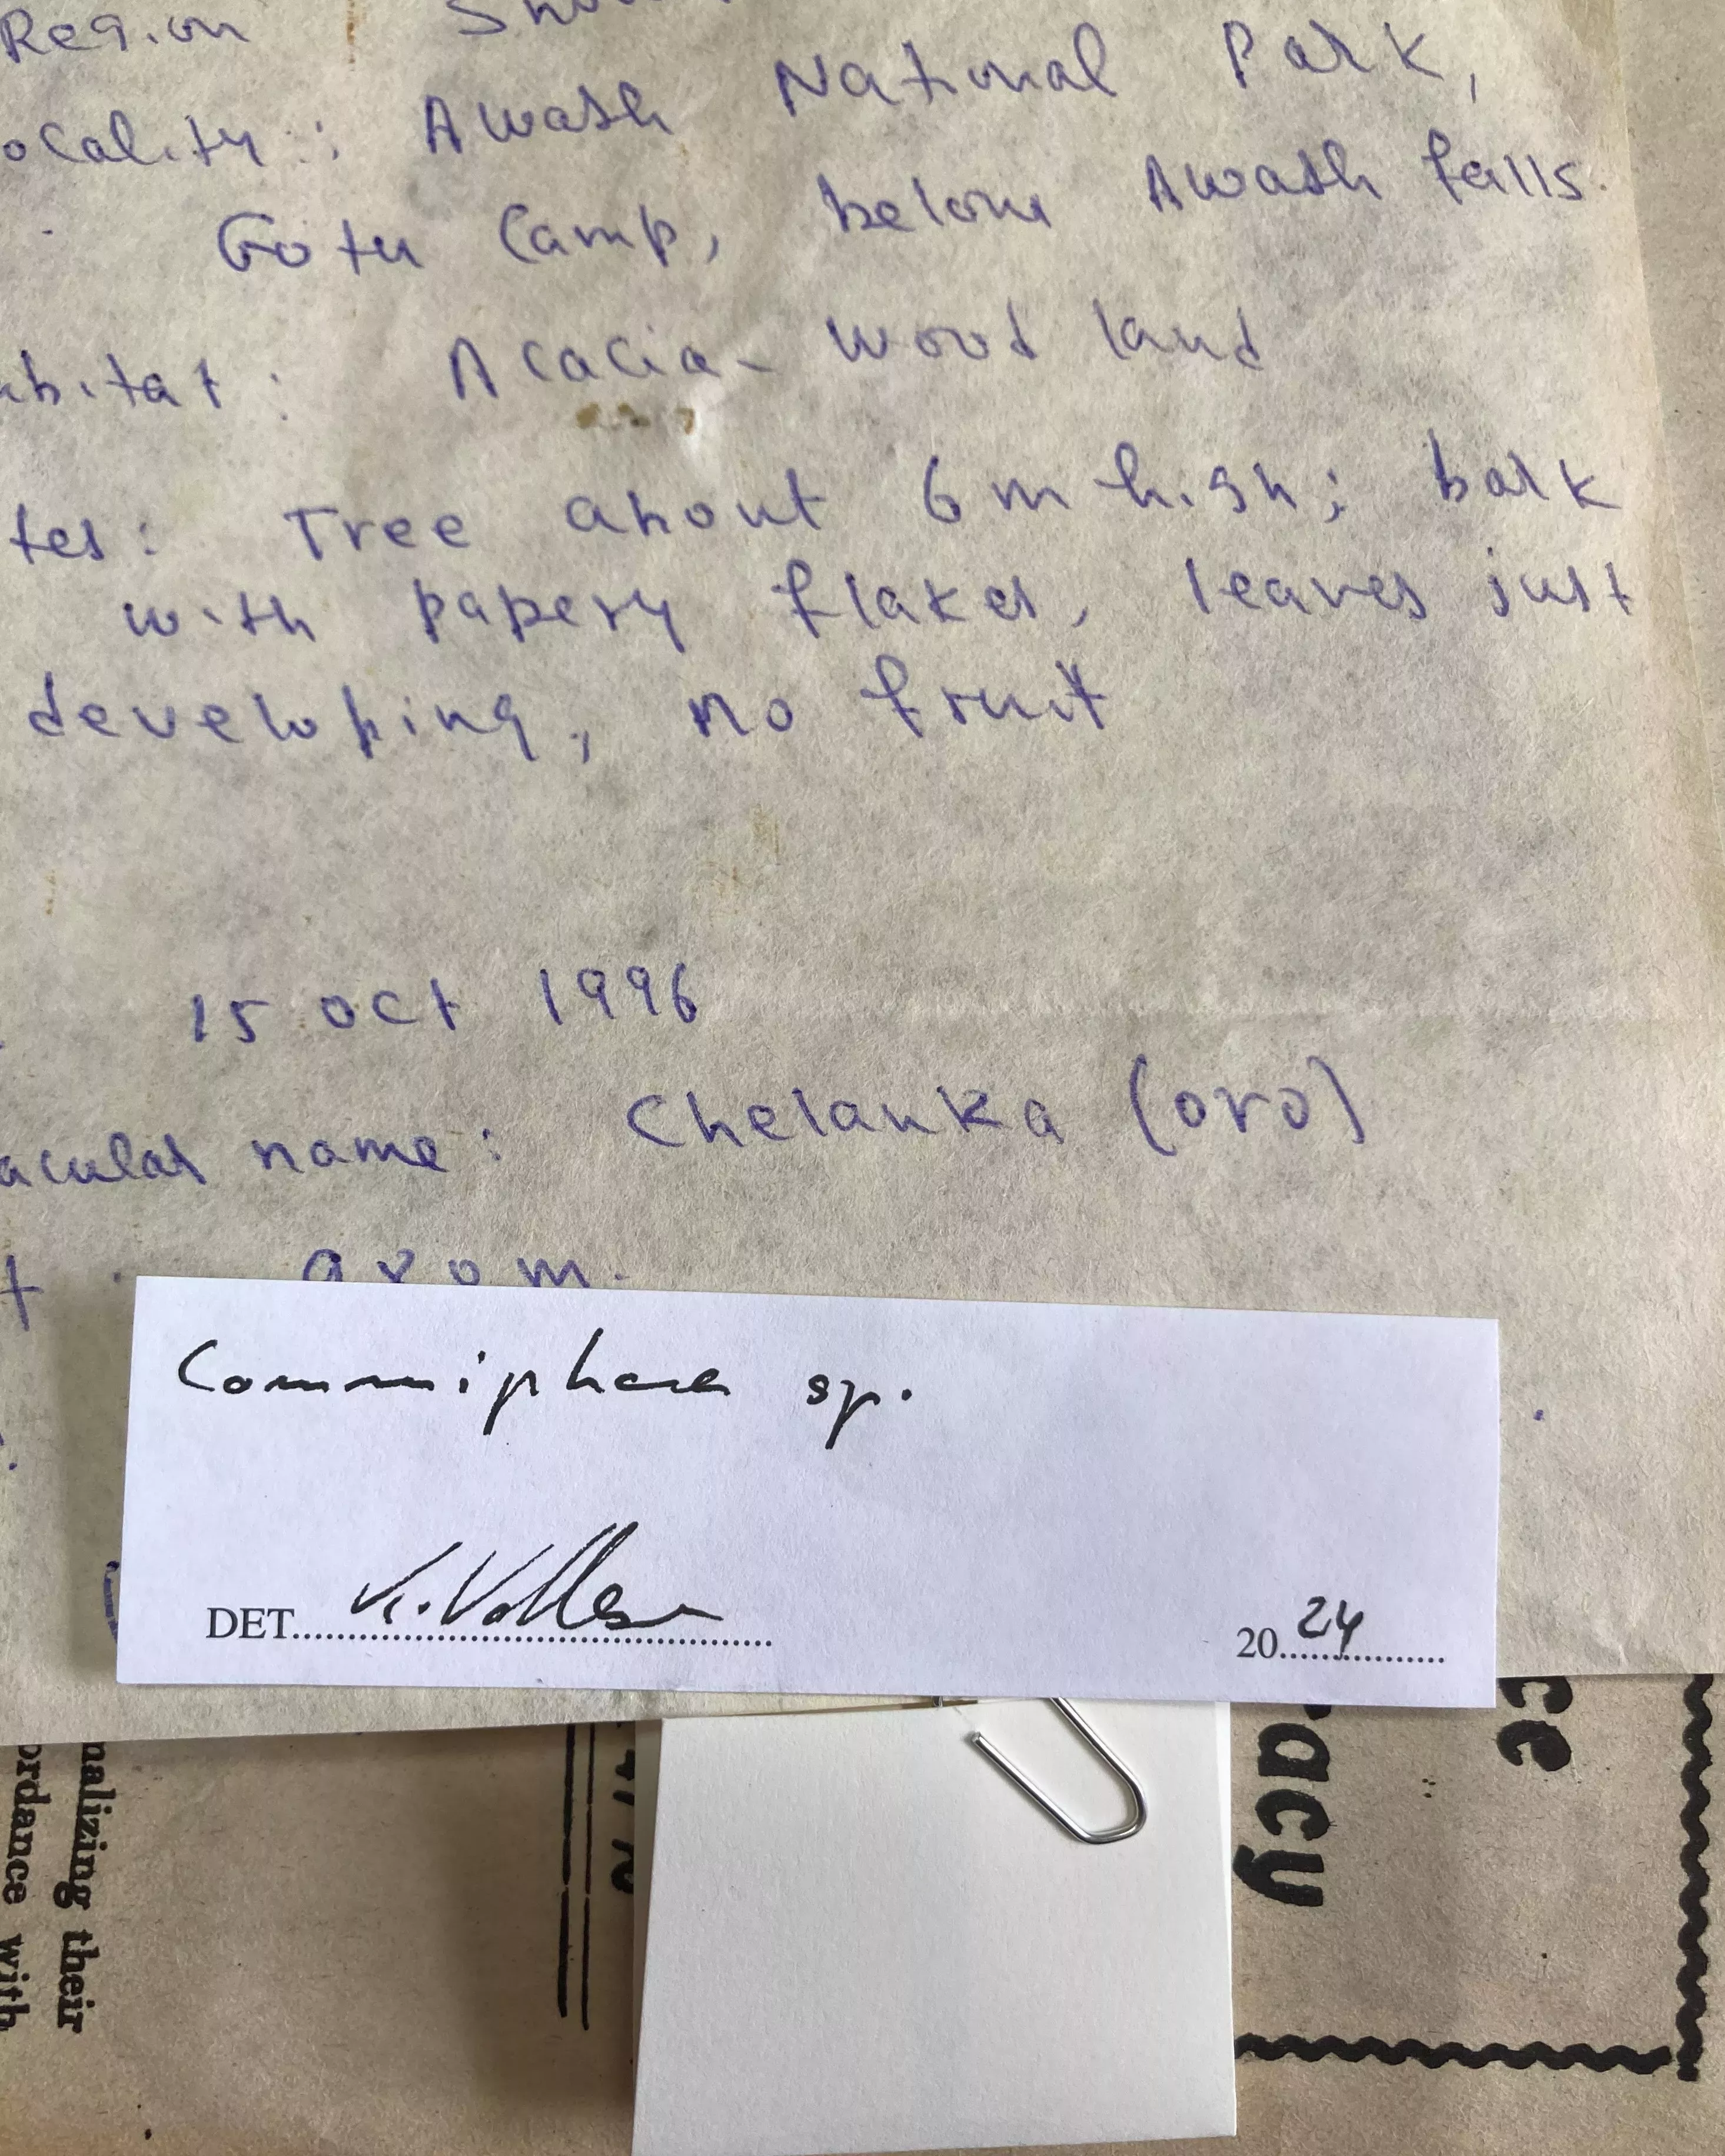 Region
ocality: Awash National Park,
Gotu Camp, below Awash falls.
abitat: Acacia- wood land
tes: Tree about 6 m high; bark
with papery flakes, leaves just
developing, no fruit
15 Oct 1996
acular name: Chelanka (oro)
arom.
Commiphora sp.
DET. K. Vollesen
20 24
ce
racy
nalizing their
ordance with